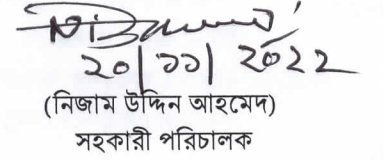 ২০|১১|২০২২
(নিজাম উদ্দিন আহমেদ)
সহকারী পরিচালক